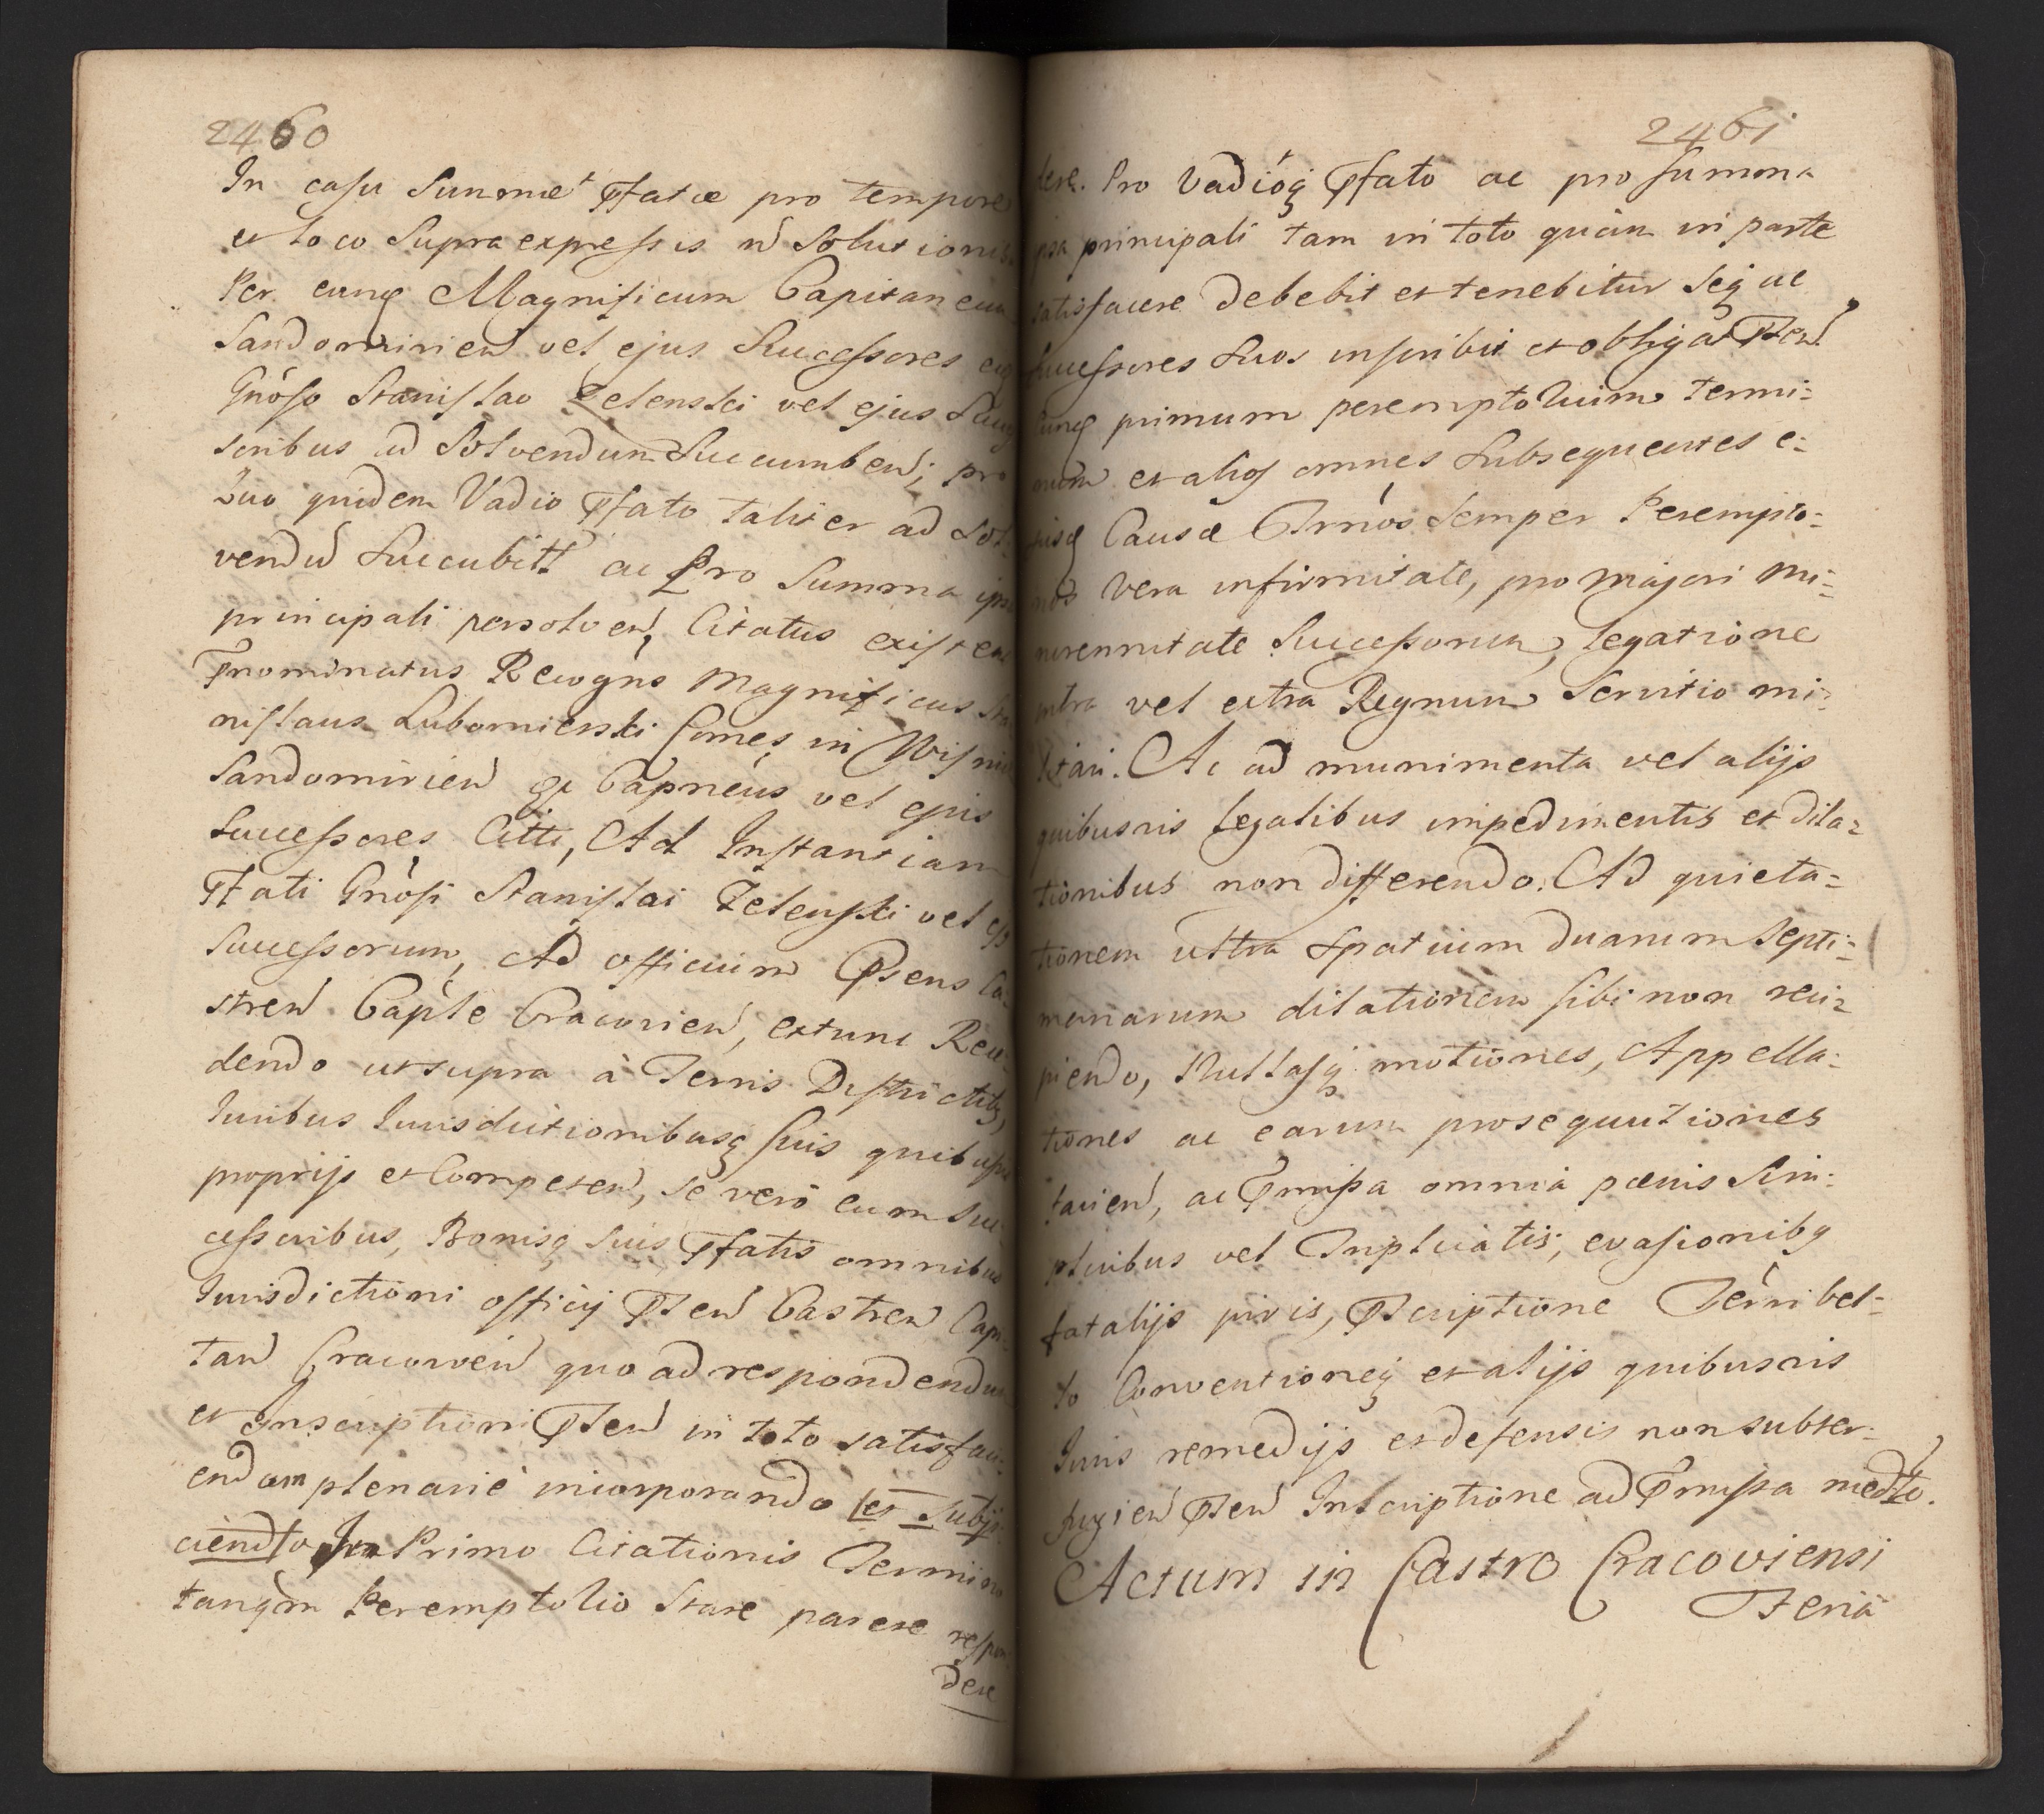 2460
In casu Summae Pfatae pro tempore
et loco supra expressis ñ solutionis
Per eunq Magnificum Capitaneum
Sandomirien vel ejus Successores
Gnoso Stanislao Zelenski vel ejus
soribus ad solvendum Succumben; pro
quo quidem Vadio Pfato taliter ad Sol-
vendũ Succubitt ac Pro Summa
principali persolven, Citatus existens
Pnominatus Recogns Magnificus Sta-
nislaus Lubomierski Comes in Wisnicz
Sandomirien qe Capneus vel ejus
Successores Citti, Ad Instantiam
Pfati Gnosi Stanislai Zelenski vel ejs
Successorum, Ad officium Psens Ca-
stren Caple Cracovien, extunc Rece-
dendo ut supra à Terris Districtibq,
Juribus Jurisdictionibusq suis quibusvis
proprijs et Competen, se vero cum Suc-
cessoribus, Bonisq suis Pfatis omnibus
Jurisdictioni officij Psen Castren Capi-
tan Cracovien quo ad respondendum
et Inscriptioni Psen in toto satisfaci-
endam plenarie incorporando et Subji-
ciendo In Primo Citationis Termino
tanqm Peremptolio Stare parere respon-
dere
2461
dere. Pro Vadióq Pfato ac pro summa
ipsa principali tam in toto quam in parte
satisfacere debebit et tenebitur Seq ac
Successores Suos inscribit et obligat Psen
Cunq primum peremptolium termi-
num et alios omnes Subsequentes e-
jusq Causae Trnos Semper Perempto-
nos Vera infirmitate, pro majori mi-
norennitate Successorum, legatione
intra vel extra Regnum Servitio mi-
litari. Ac ad munimenta vel alijs
quibusvis legalibus impedimentis et dila-
tionibus non differendo. Ad quieta-
tionem ultra Spatium duarum Septi-
manarum dilationem sibi non reci-
piendo, Nullasq motiones, Appella-
tiones ac earum prosequutiones
facien, ac Pmissa omnia paenis Sim-
plicibus vel Triplicatis, evasionibq
fatalijs juris, Pscriptione Terribel-
lo Conventioneq et alijs quibusvis
Juris remedijs et defensis non subter-
fugien Psen Inscriptione ad Pmissa medte.
Actum in Castro Cracoviensi
Feria